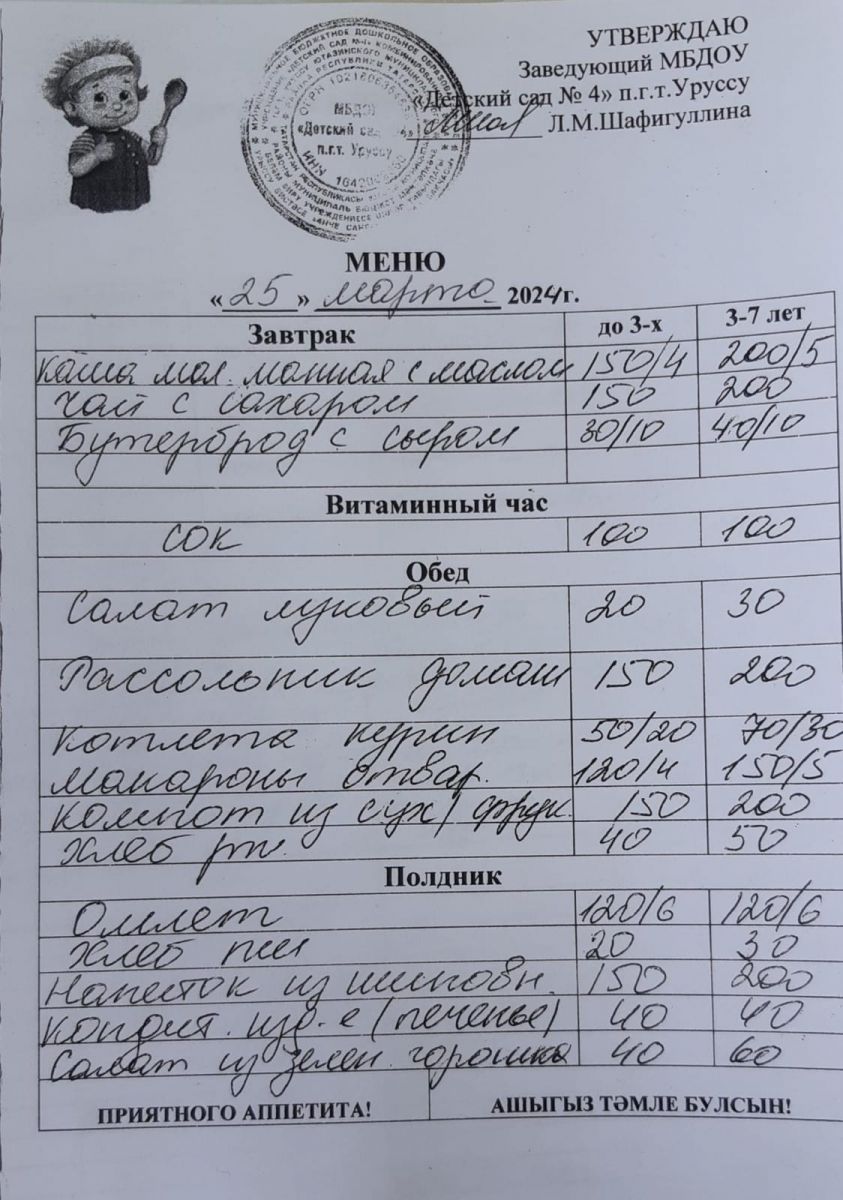 УТВЕРЖДАЮ
Заведующий МБДОУ
«Детский сад № 4» п.г.т.Уруссу
Л.М.Шафигуллина
МБДОУ
«Детский сад 4»
п.г.т. Уруссу
МЕНЮ
«25» марта 2024г.
Завтрак до 3-х 3-7 лет
Каша мол. манная с маслом 150/4 200/5
Чай с сахаром 150 200
Бутерброд с сыром 30/10 40/10
Витаминный час
сок 100 100
Обед
Салат луковый 20 30
Рассольник домаш 150 200
Котлета курин 50/20 70/30
Макароны отвар. 120/4 150/5
Компот из сух/фрук. 150 200
Хлеб рж. 40 50
Полдник
Омлет 120/6 120/6
Хлеб пш 20 30
Напиток из шиповн. 150 200
Кондит. изд-е (печенье) 40 40
Салат из зелен. горошка 40 60
ПРИЯТНОГО АППЕТИТА! АШЫГЫЗ ТӘМЛЕ БУЛСЫН!